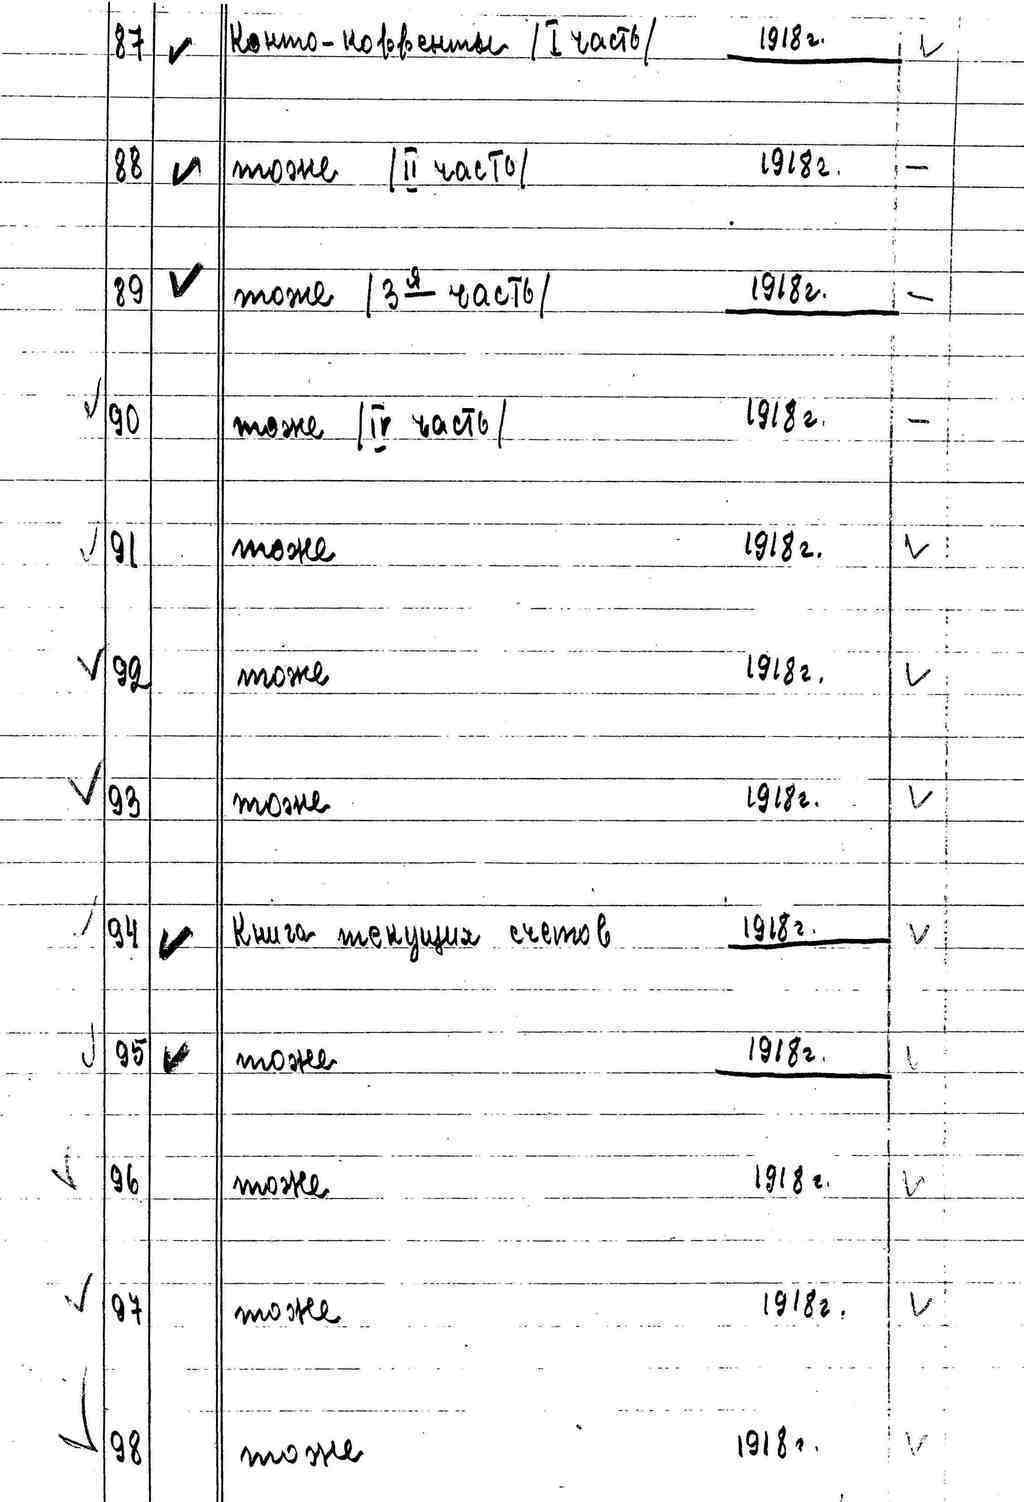 87 ✓ Конто-корренты /I часть/ 1918г. ✓
88 ✓ тоже /II часть/ 1918г. –
89 ✓ тоже /3я часть/ 1918г. –
✓ 90 тоже /IV часть/ 1918г. –
✓ 91 тоже 1918г. ✓
✓ 92 тоже 1918г. ✓
✓ 93 тоже 1918г. ✓
✓ 94 ✓ Книга текущих счетов 1918г. ✓
✓ 95 ✓ тоже 1918г. ✓
✓ 96 тоже 1918г. ✓
✓ 97 тоже 1918г. ✓
✓ 98 тоже 1918г. ✓